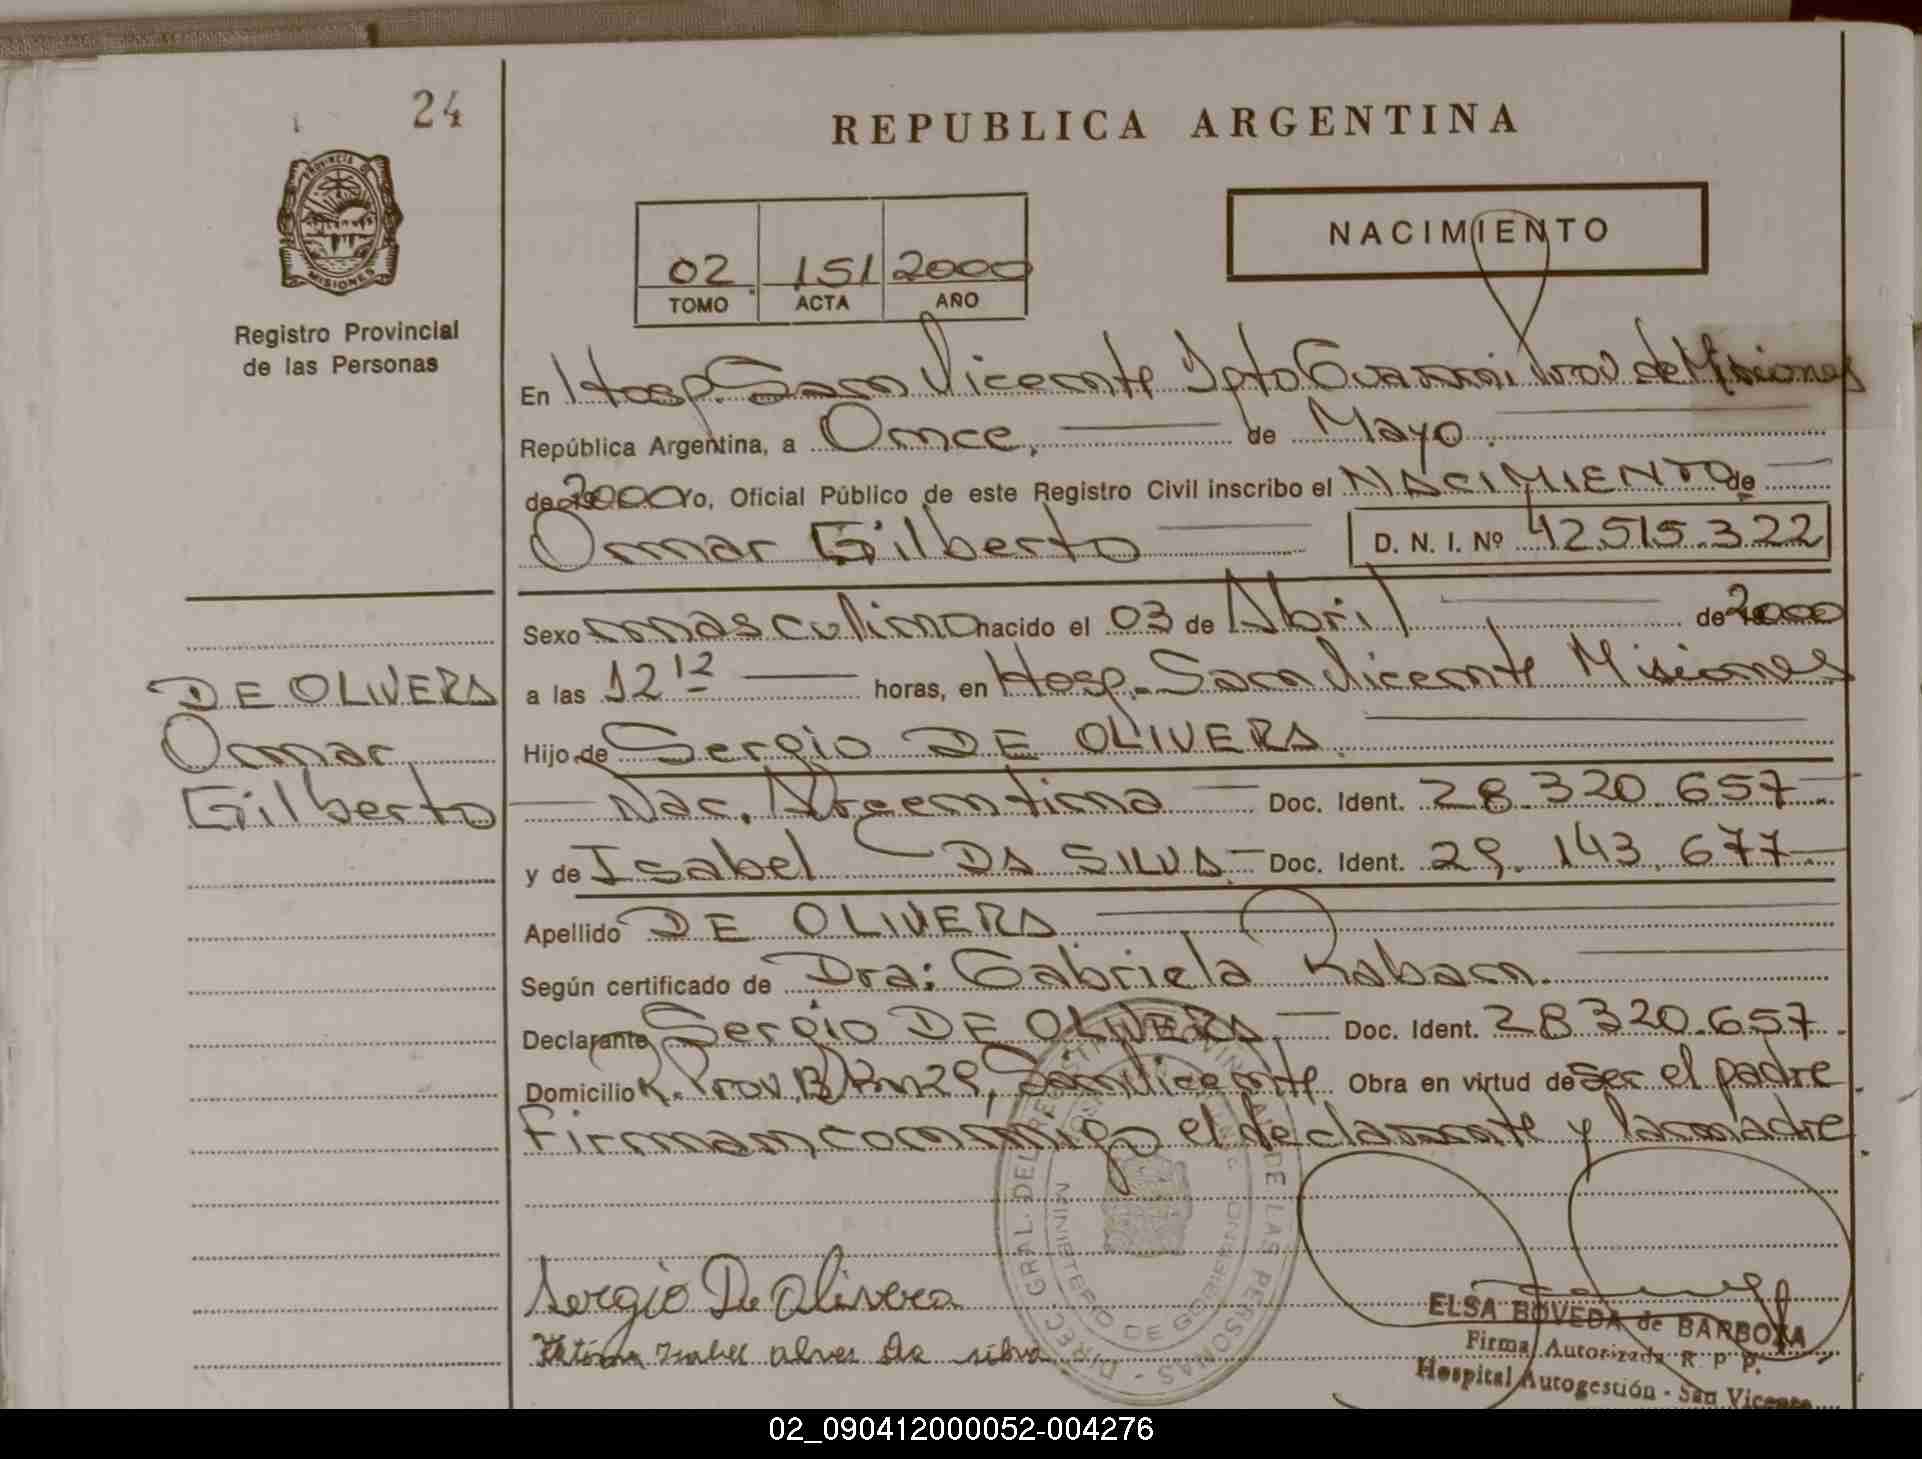 24
REPUBLICA ARGENTINA
PROVINCIA DE
MISIONES
Registro Provincial
de las Personas
02 151 2000
TOMO ACTA AÑO
NACIMIENTO
En Hosp. San Vicente Dpto Guaraní Prov de Misiones
República Argentina, a Once, de Mayo
de 2000 Yo, Oficial Público de este Registro Civil inscribo el NACIMIENTO de
Omar Gilberto D. N. I. Nº 42.515.322
Sexo masculino nacido el 03 de Abril de 2000
DE OLIVERA
Omar
Gilberto
a las 12 12 horas, en Hosp. San Vicente Misiones
Hijo de Sergio DE OLIVERA
Nac. Argentina Doc. Ident. 28.320.657
y de Isabel DA SILVA Doc. Ident. 29.143.677
Apellido DE OLIVERA
Según certificado de Dra: Gabriela Raban.
Declarante Sergio DE OLIVERA Doc. Ident. 28320.657
Domicilio R. Prov. Km 29, San Vicente Obra en virtud de ser el padre
Firman conmigo el declarante y la madre
DIREC. GRAL. DEL REGISTRO PROVINCIAL DE LAS PERSONAS
MINISTERIO DE GOBIERNO
Sergio De Olivera
Isabel Alves Da silva
ELSA BOVEDA de BARBOZA
Firma Autorizada R. P. P.
Hospital Autogestión - San Vicente
02_090412000052-004276